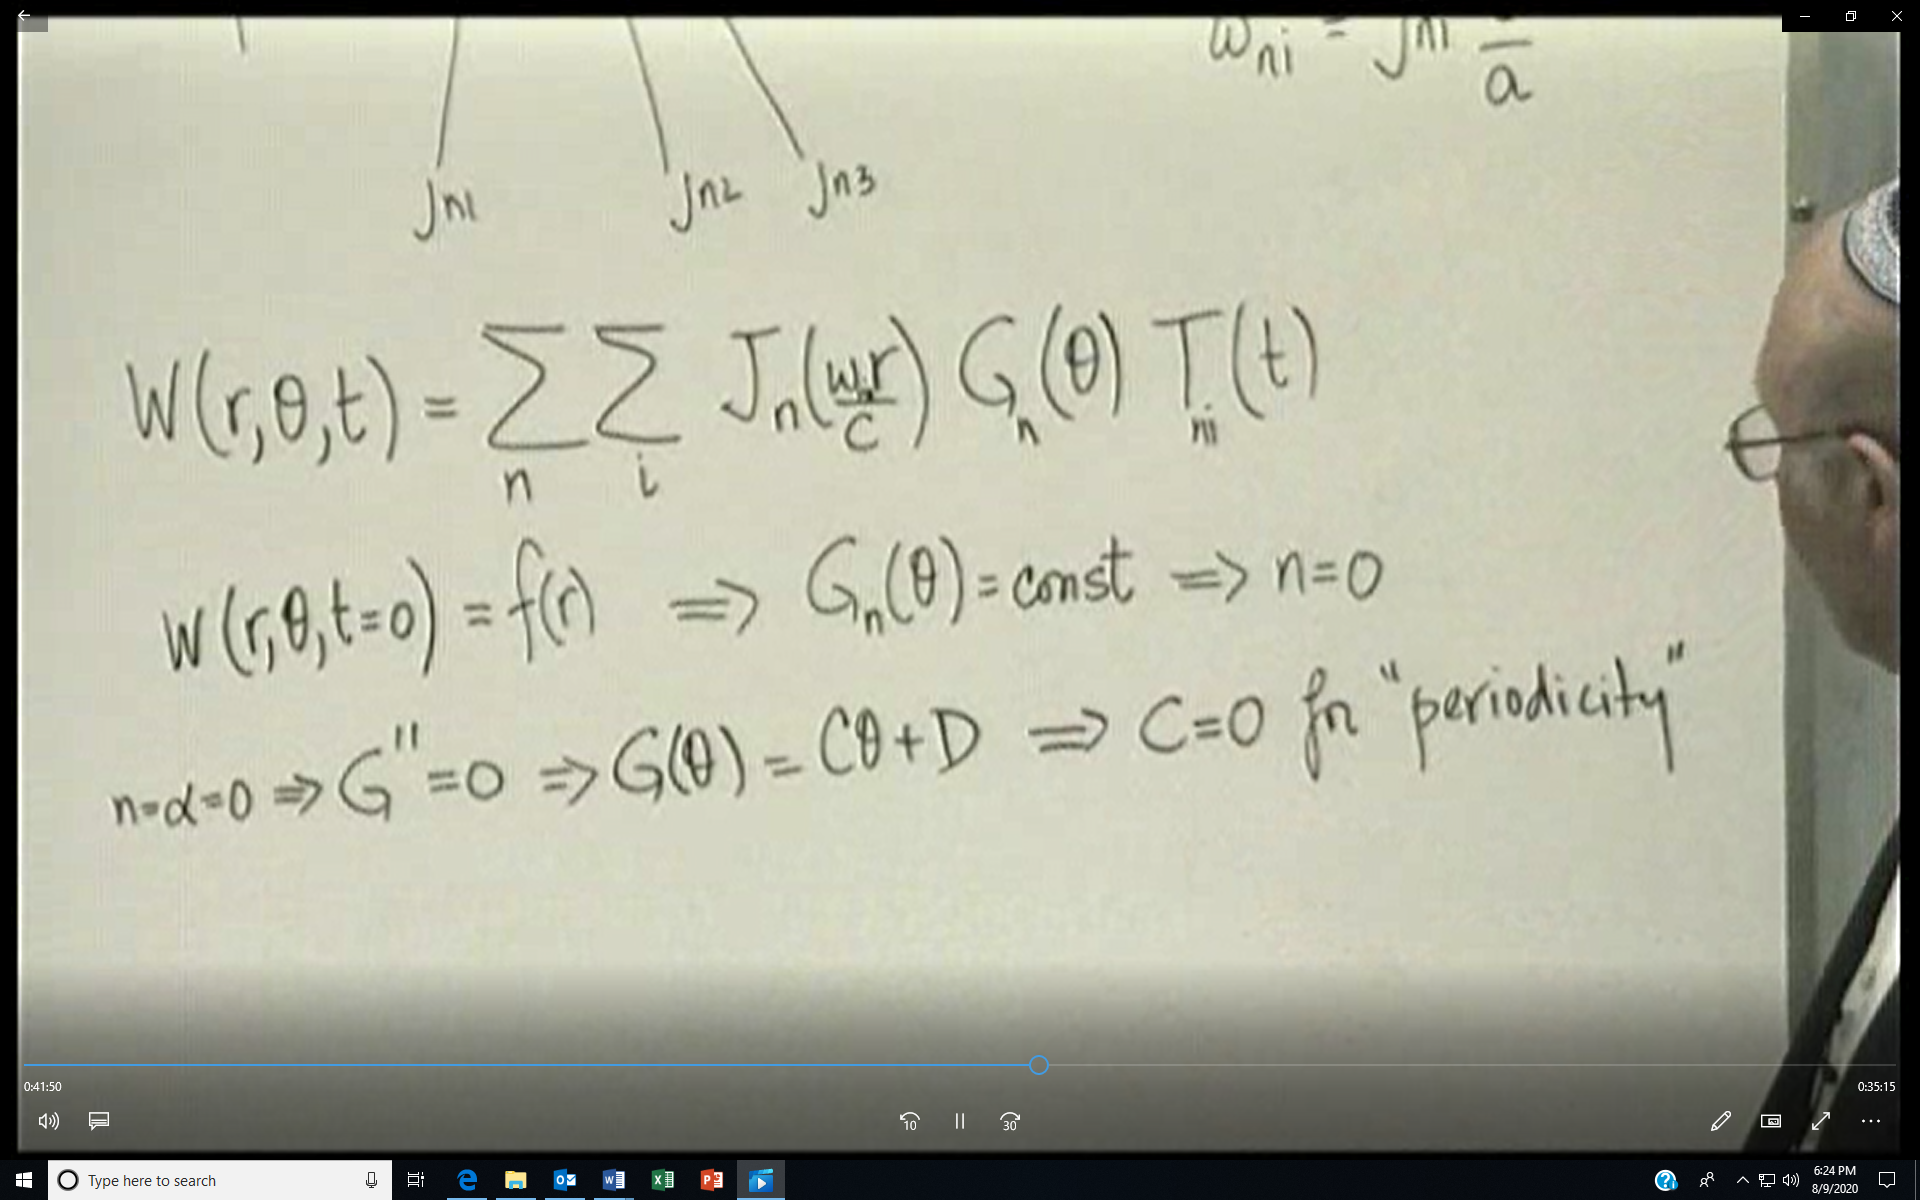 ω_ni = j_ni /a
j_n1 j_n2 j_n3
W(r,θ,t) = Σ_n Σ_i J_n(ωr/c) G_n(θ) T_ni(t)
W(r,θ,t=0) = f(r) ⇒ G_n(θ) = const ⇒ n=0
n=α=0 ⇒ G''=0 ⇒ G(θ) = Cθ+D ⇒ C=0 for "periodicity"
0:41:50 0:35:15
10 30
Type here to search
6:24 PM
8/9/2020